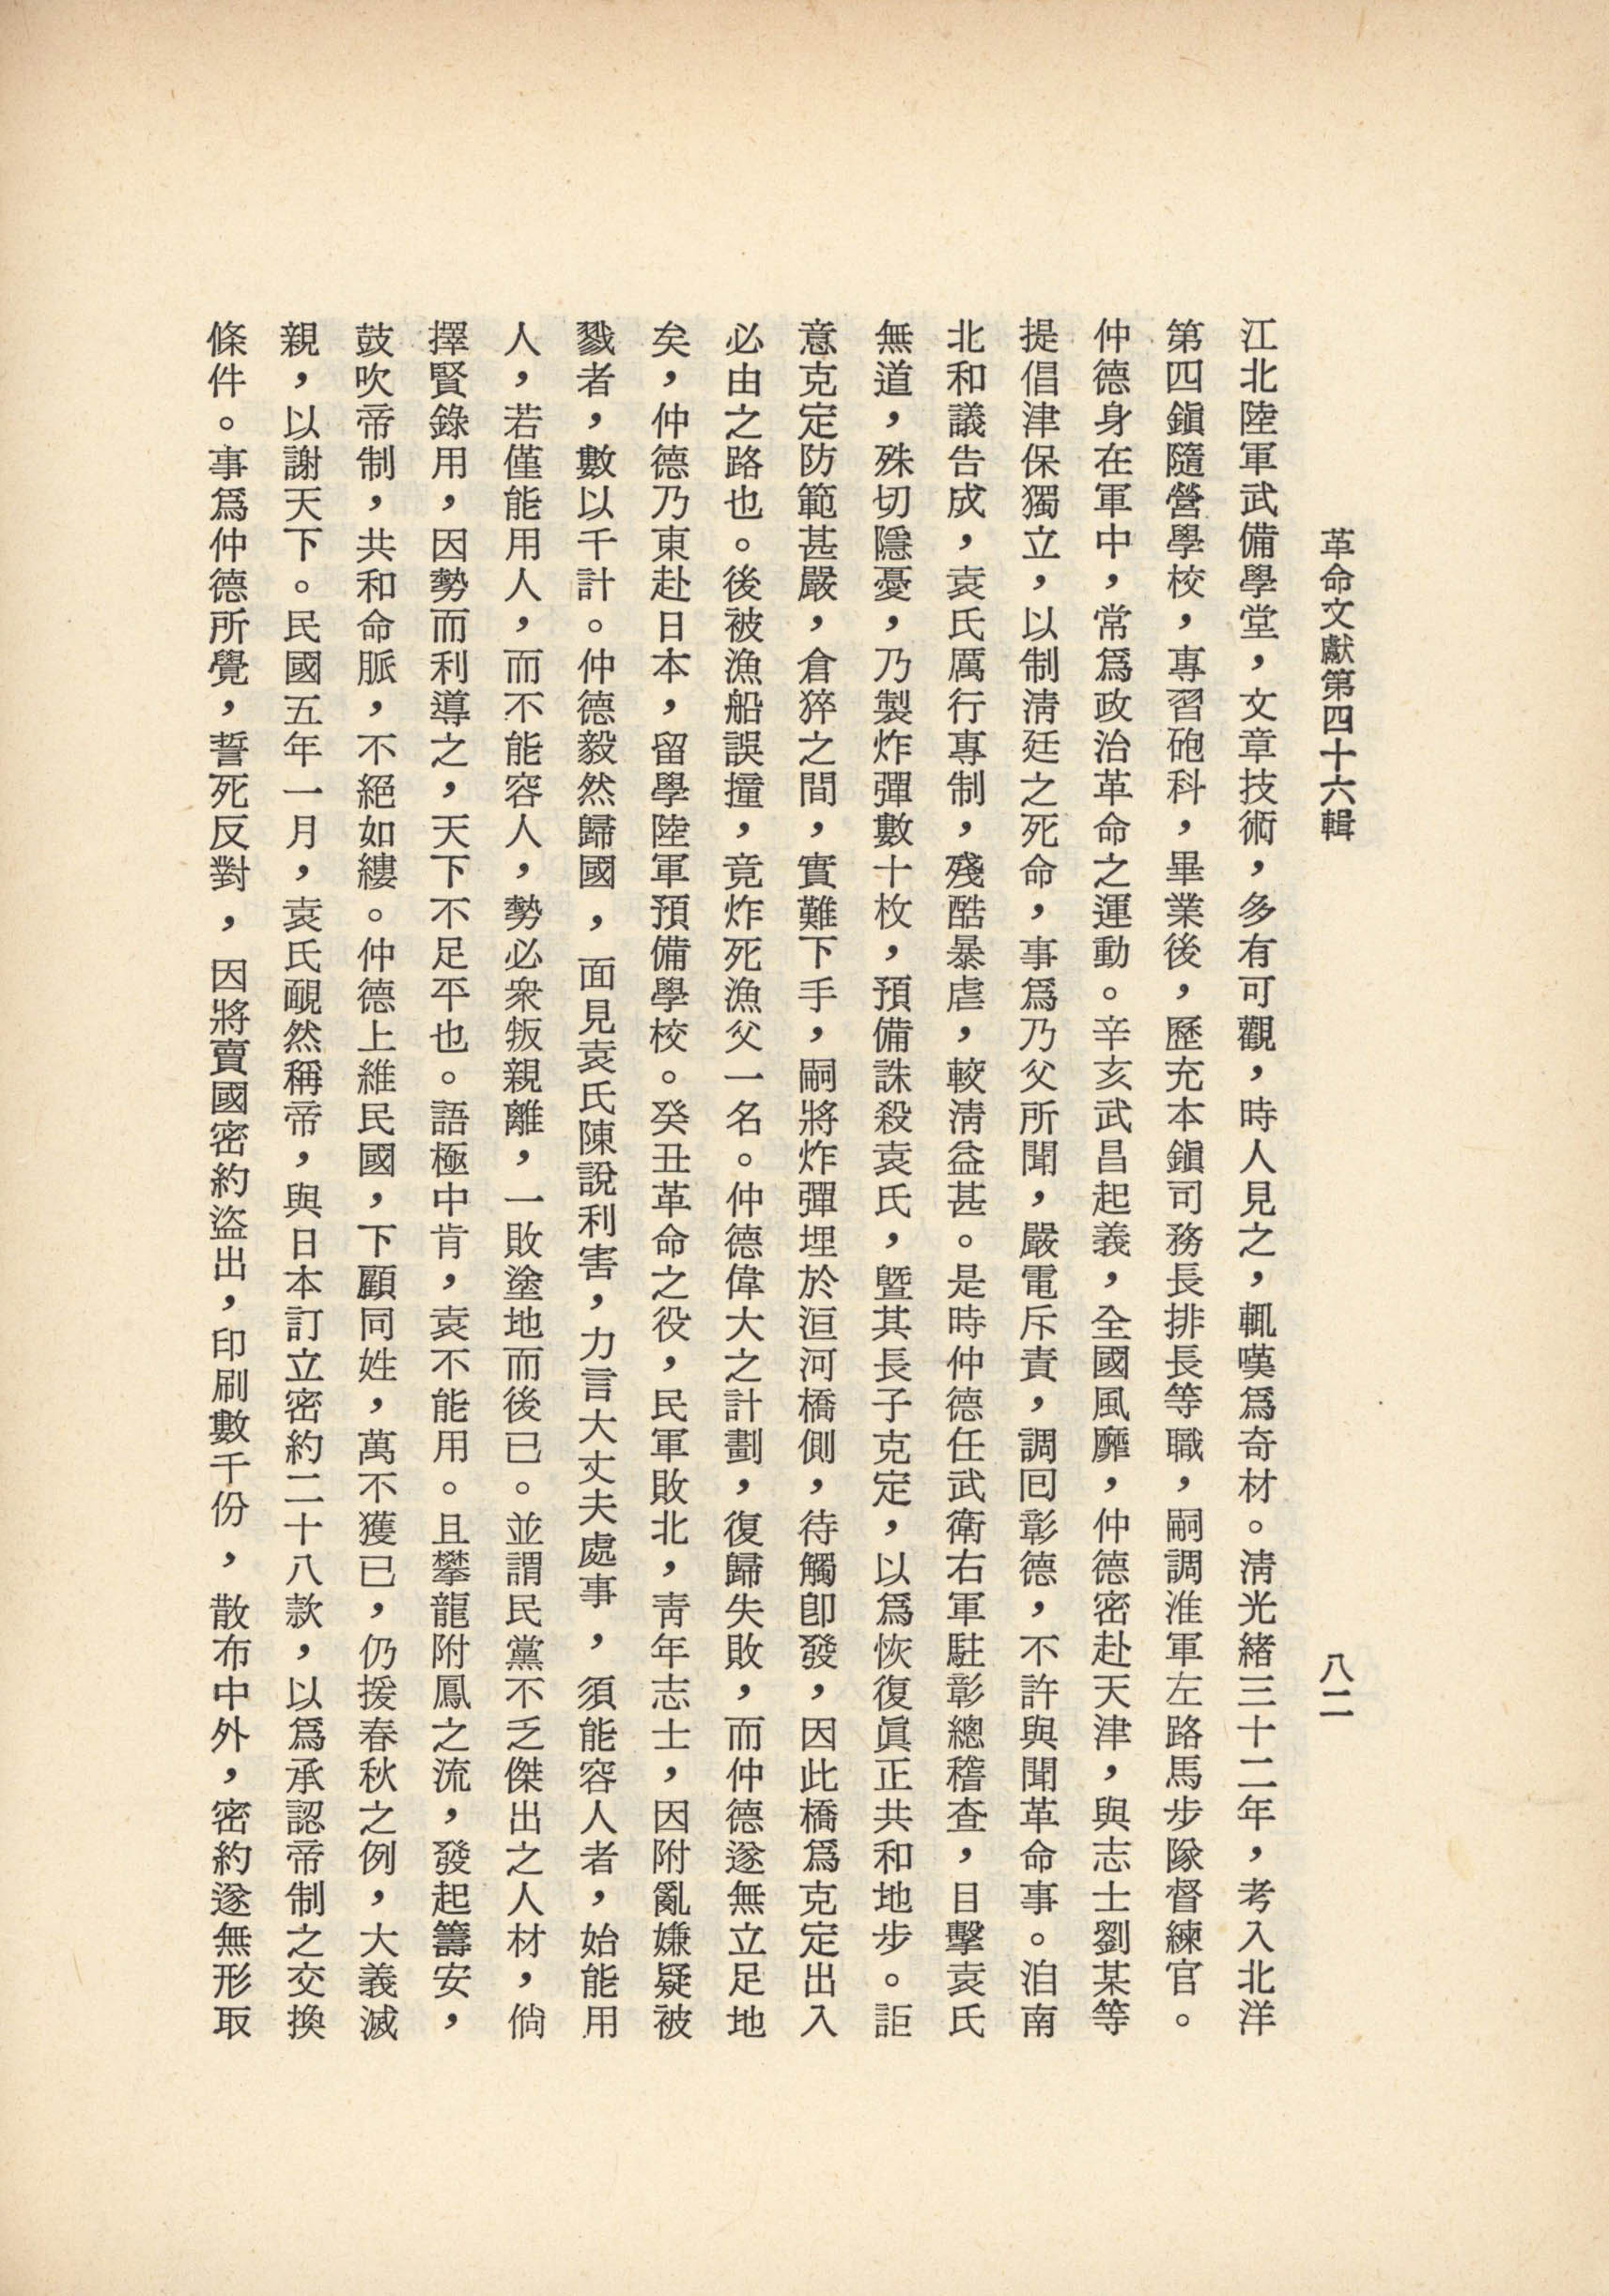 革命文獻第四十六輯
八二
江北陸軍武備學堂，文章技術，多有可觀，時人見之，輒嘆爲奇材。淸光緖三十二年，考入北洋
第四鎭隨營學校，專習砲科，畢業後，歷充本鎭司務長排長等職，嗣調淮軍左路馬步隊督練官。
仲德身在軍中，常爲政治革命之運動。辛亥武昌起義，全國風靡，仲德密赴天津，與志士劉某等
提倡津保獨立，以制淸廷之死命，事爲乃父所聞，嚴電斥責，調囘彰德，不許與聞革命事。洎南
北和議告成，袁氏厲行專制，殘酷暴虐，較淸益甚。是時仲德任武衛右軍駐彰總稽查，目擊袁氏
無道，殊切隱憂，乃製炸彈數十枚，預備誅殺袁氏，曁其長子克定，以爲恢復眞正共和地步。詎
意克定防範甚嚴，倉猝之間，實難下手，嗣將炸彈埋於洹河橋側，待觸卽發，因此橋爲克定出入
必由之路也。後被漁船誤撞，竟炸死漁父一名。仲德偉大之計劃，復歸失敗，而仲德遂無立足地
矣，仲德乃東赴日本，留學陸軍預備學校。癸丑革命之役，民軍敗北，靑年志士，因附亂嫌疑被
戮者，數以千計。仲德毅然歸國，面見袁氏陳說利害，力言大丈夫處事，須能容人者，始能用
人，若僅能用人，而不能容人，勢必衆叛親離，一敗塗地而後已。並謂民黨不乏傑出之人材，倘
擇賢錄用，因勢而利導之，天下不足平也。語極中肯，袁不能用。且攀龍附鳳之流，發起籌安，
鼓吹帝制，共和命脈，不絕如縷。仲德上維民國，下顧同姓，萬不獲已，仍援春秋之例，大義滅
親，以謝天下。民國五年一月，袁氏靦然稱帝，與日本訂立密約二十八款，以爲承認帝制之交換
條件。事爲仲德所覺，誓死反對，因將賣國密約盜出，印刷數千份，散布中外，密約遂無形取